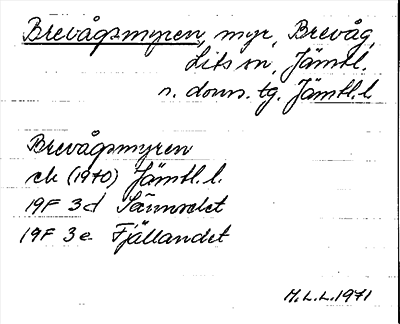 Brevågsmyren, myr, Brevåg,
Lits sn, Jämtl.
n. doms. tg. Jämtl. l.
Brevågsmyren
ek (1970) Jämtl. l.
19F 3d
19F 3e Fjällandet
H.L.L. 1971